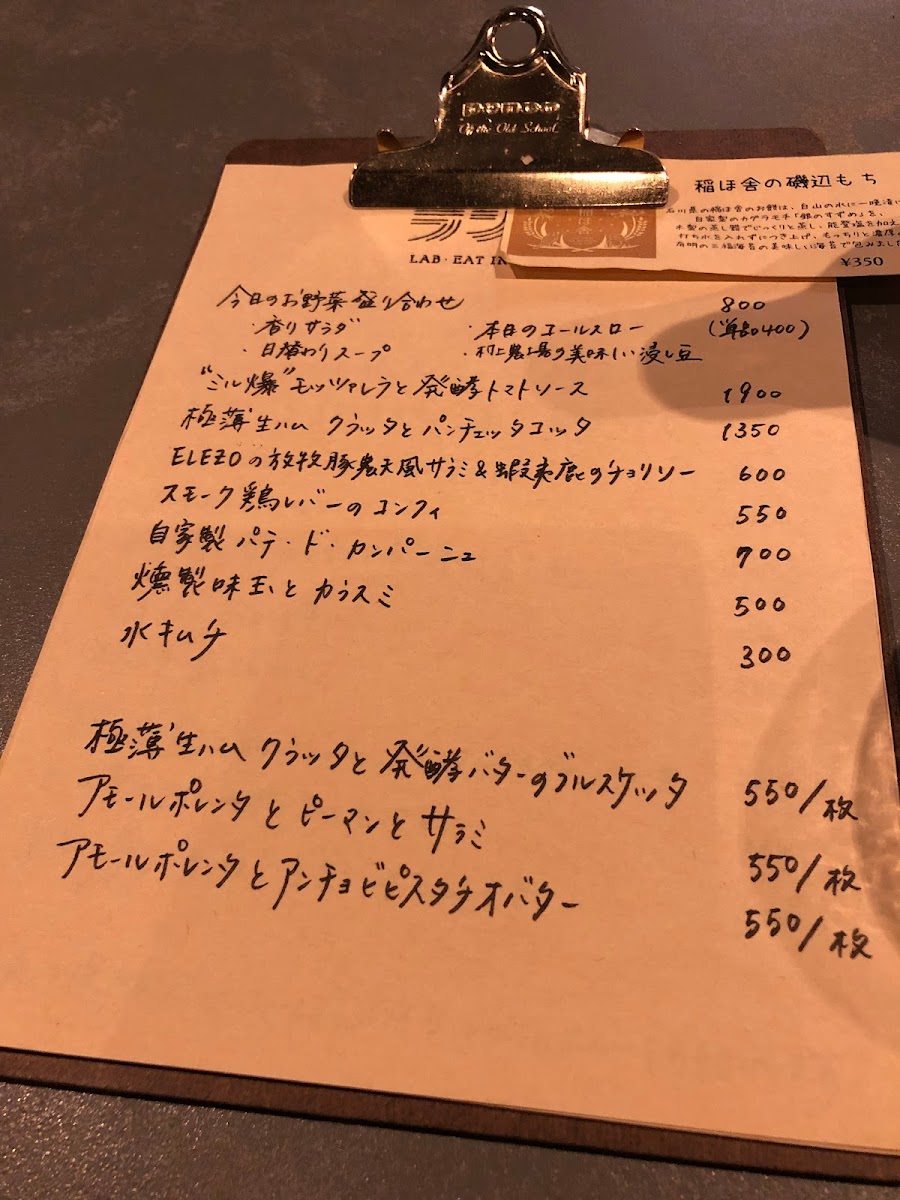 PENCO
Of the Old School
稲ほ舎の磯辺もち
石川県の稲ほ舎のお餅は、白山の水に一晩漬け
自家製のカグラモチ「銀のすずめ」を、
木製の蒸し器でじっくりと蒸し、能登塩を加え
打ち水を入れずにつき上げ、もっちりと濃厚
有明の三福海苔の美味しい海苔で包みました
¥350
LAB・EAT IN
今日のお野菜盛り合わせ 800
・香りサラダ ・本日のコールスロー (単品400)
・日替わりスープ ・村上農場の美味しい浸し豆
"ミル爆"モッツァレラと発酵トマトソース 1900
極薄生ハム クラッタとパンチェッタコッタ 1350
ELEZOの放牧豚農夫風サラミ&蝦夷鹿のチョリソー 600
スモーク鶏レバーのコンフィ 550
自家製パテ・ド・カンパーニュ 700
燻製味玉とカラスミ 500
水キムチ 300
極薄生ハム クラッタと発酵バターのブルスケッタ 550/枚
アモールポレンタとピーマンとサラミ 550/枚
アモールポレンタとアンチョビピスタチオバター 550/枚